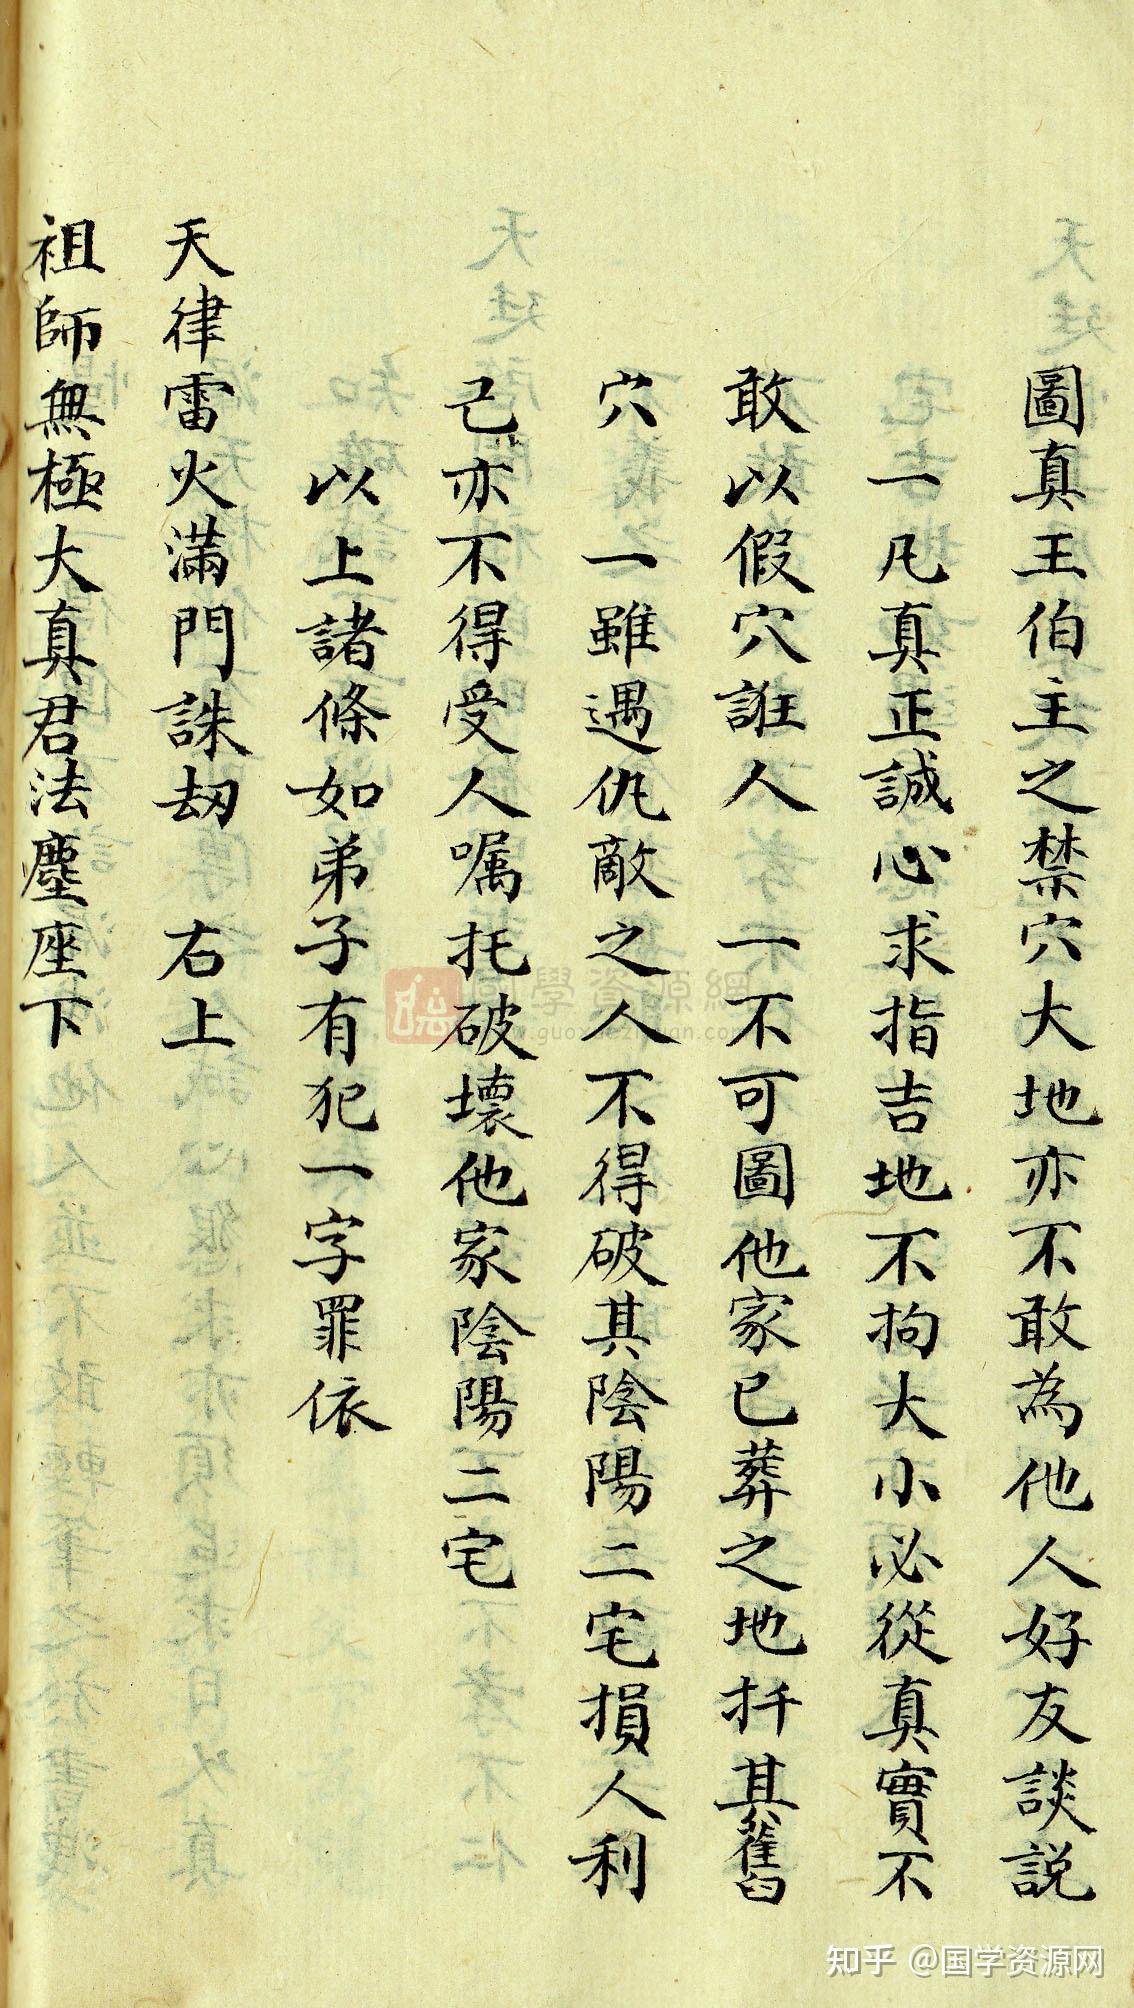 圖真王伯主之禁穴大地亦不敢為他人好友談説
一凡真正誠心求指吉地不拘大小必從真實不
敢以假穴誑人 一不可圖他家已葬之地扦其舊
穴 一雖遇仇敵之人不得破其陰陽二宅損人利
己亦不得受人嘱托破壞他家陰陽二宅
以上諸條如弟子有犯一字罪依
天律雷火滿門誅刼 右上
祖師無極大真君法塵座下
國學資源網
www.guoxuezhiyuan.com
知乎 @国学资源网